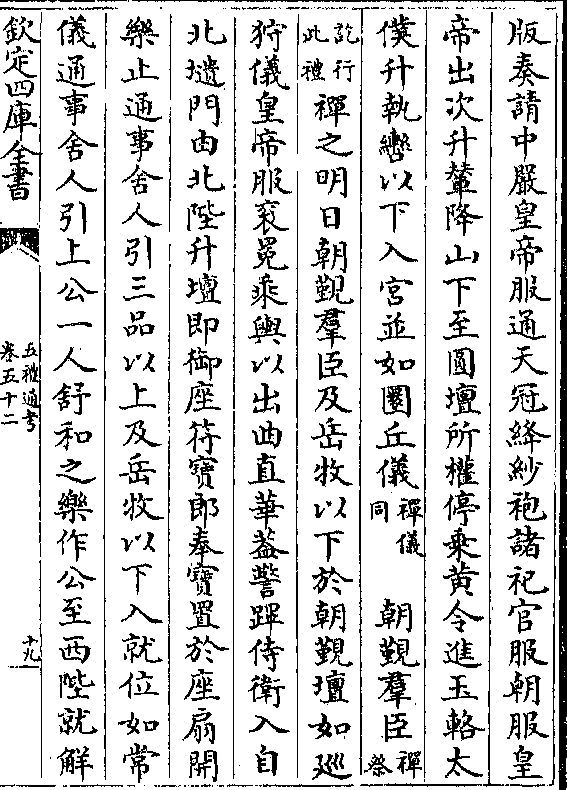 版奏請中嚴皇帝服通天冠絳紗袍諸祀官服朝服皇
帝出次升輦降山下至圜壇所權停乘黄令進玉輅太
僕升執轡以下入宮並如圜丘儀禪儀同　朝覲羣臣禪祭
訖行此禮　禪之明日朝覲羣臣及岳牧以下於朝覲壇如廵
狩儀皇帝服衮冕乘輿以出曲直華蓋警蹕侍衛入自
北壝門由北陛升壇即御座符寶郎奉寶置於座扇開
樂止通事舍人引三品以上及岳牧以下入就位如常
儀通事舍人引上公一人舒和之樂作公至西陛就解
欽定四庫全書
五禮通考
卷五十二
十九